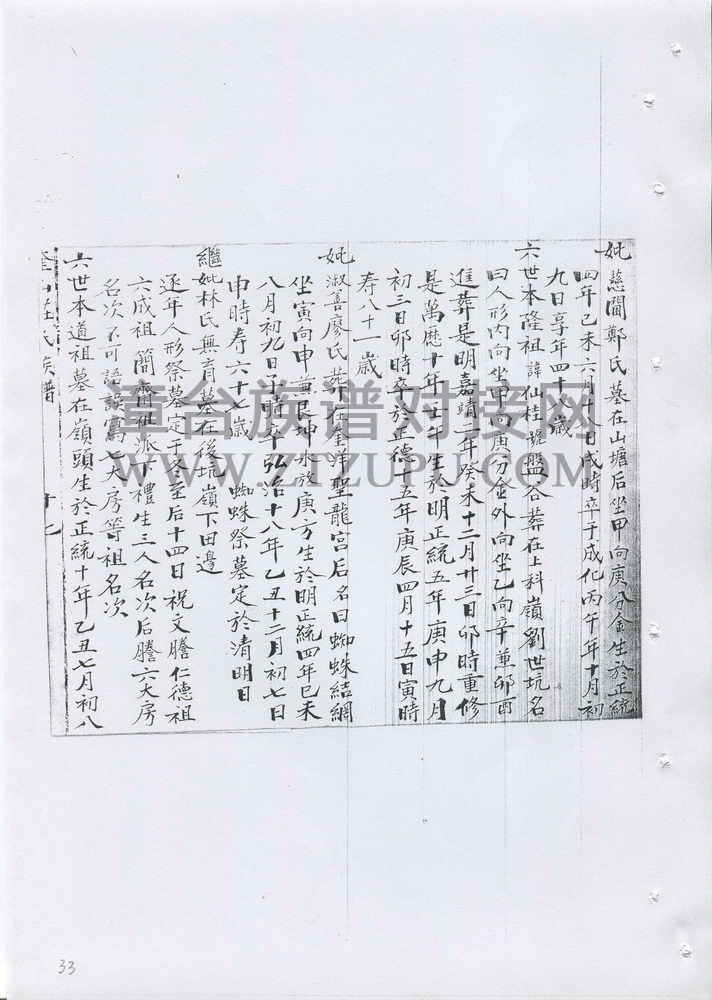 妣慈閫鄭氏墓在山塘后坐甲向庚分金生於正統
四年己未六月十八日戌時卒于成化丙午年十月初
九日享年四十八歲
六世本隆祖諱仙桂號盤谷葬在上科嶺劉世坑名
曰人形內向坐甲向庚分金外向坐乙向辛兼卯酉
進葬是明嘉靖二年癸未十二月廿三日卯時重修
是萬歷十年壬午生於明正統五年庚申九月
初三日卯時卒於正德十五年庚辰四月十五日寅時
寿八十一歲
妣淑善廖氏葬在金洋聖龍宮后名曰蜘蛛結網
坐寅向申兼艮坤水放庚方生於明正統四年己未
八月初九日子時卒弘治十八年乙丑十二月初七日
申時寿六十七歲 蜘蛛祭墓定於清明日
繼妣林氏無育墓在後坑嶺下田邊
逐年人形祭墓定于冬至后十四日祝文謄仁德祖
六成祖簡齋祖派下禮生三人名次后謄六大房
名次不可語誤寫七大房等祖名次
六世本道祖墓在嶺頭生於正統十年乙丑七月初八
莊氏族譜
童台族谱对接网
WWW.ZTZUPU.COM
33